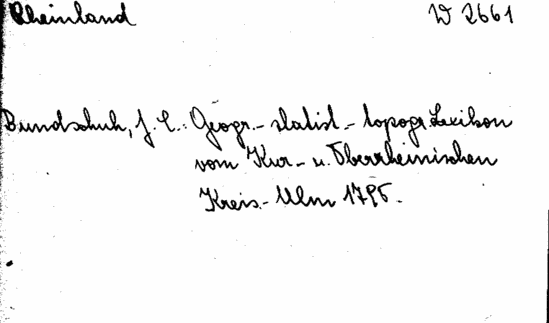 Rheinland W 2661
Bundschuh, J. C.: Geogr.- statist.- topogr. Lexikon
vom Kur- u. Oberrheinischen
Kreis.- Ulm 1795.